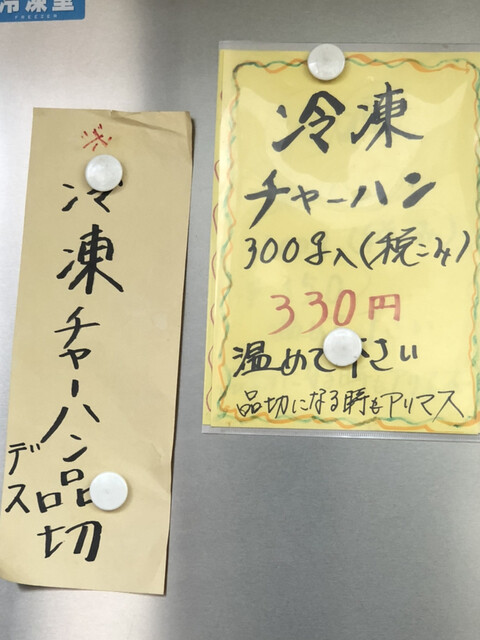 冷凍室
FREEZER
冷凍
チャーハン
300g入(税こみ)
330円
温めて下さい
品切になる時もアリマス
※
冷凍チャーハン品切
デス